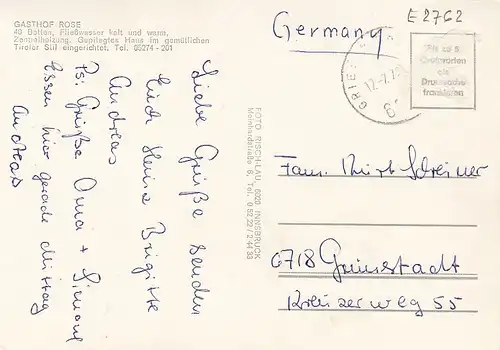 GASTHOF ROSE
40 Betten, Fließwasser kalt und warm,
Zentralheizung. Gepflegtes Haus im gemütlichen
Tiroler Stil eingerichtet. Tel. 05274-201
Liebe Grüße senden
Euch Heinz Brigitte
Andreas
Ps: Grüße Oma + Simone
Essen hier gerade Mittag
Andreas
FOTO RISCH-LAU, 6020 INNSBRUCK
6, Tel. 0 52 22 / 2 44 33
Germany
E2762
GRIES
Bis zu 5
Grußworten
als
Drucksache
frankieren
Fam. Kurt Schreiner
6718 Grünstadt
Kreuzerweg 55